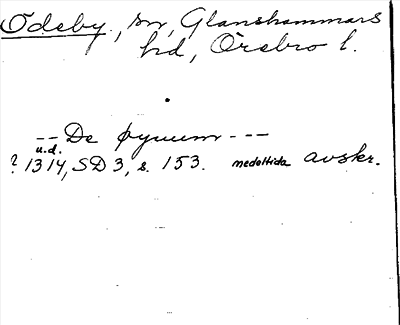 Ödeby, sn, Glanshammars
hd, Örebro l.
-- De øynem ---
u.d.
? 1314, SD 3, s. 153. medeltida avskr.